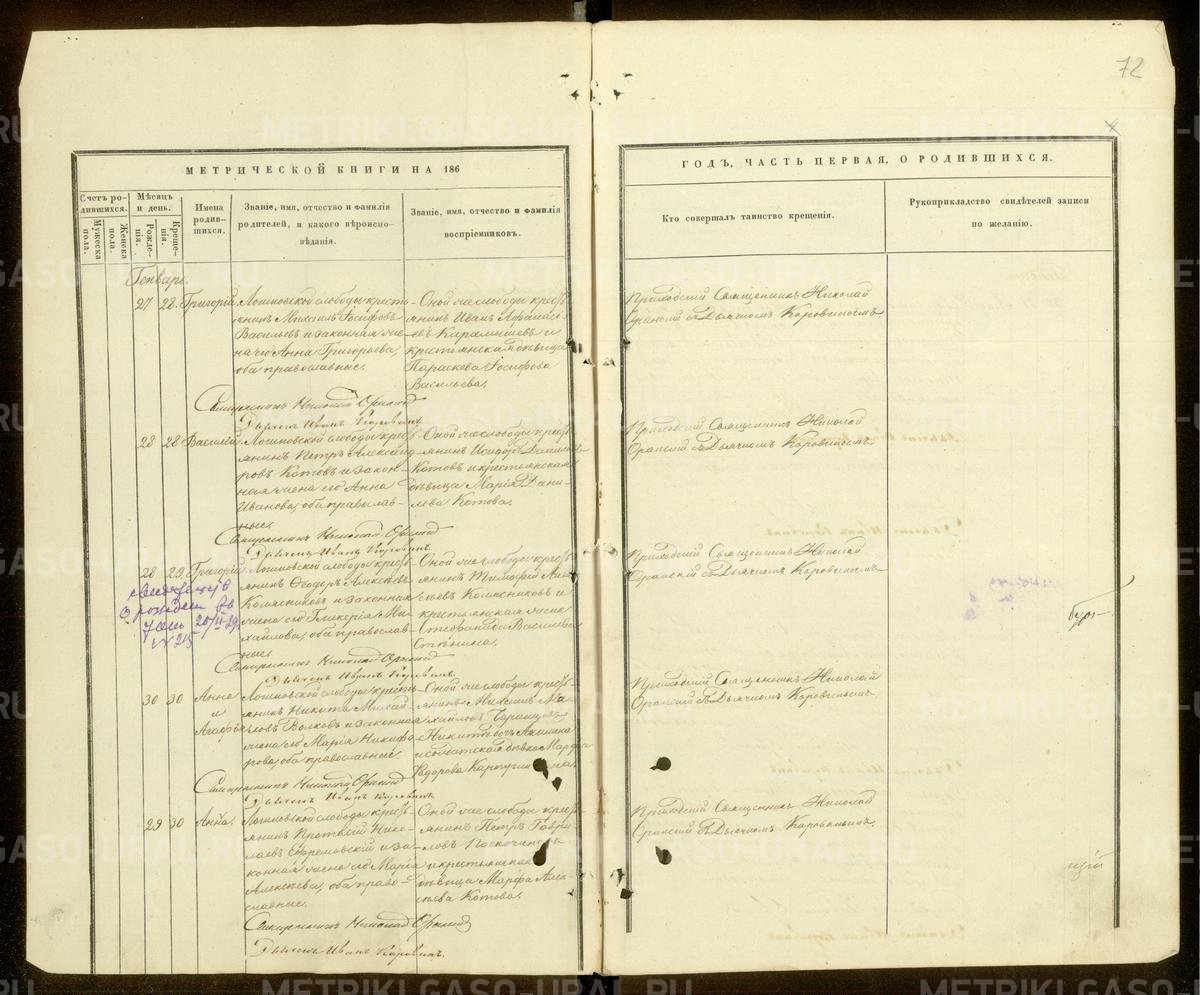 72
МЕТРИЧЕСКОЙ КНИГИ НА 186
ГОДЪ, ЧАСТЬ ПЕРВАЯ, О РОДИВШИХСЯ.
Счетъ родившихся.
Мужеска пола.
Женска пола.
Мѣсяцъ и день.
Рожденія.
Крещенія.
Имена родившихся.
Званіе, имя, отчество и фамилія родителей, и какого вѣроисповѣданія.
Званіе, имя, отчество и фамилія воспріемниковъ.
Кто совершалъ таинство крещенія.
Рукоприкладство свидѣтелей записи по желанію.
Генварь.
27 28. Григорій.
Логиновской слободы кресть-
янинъ Михаилъ Іосифовъ
Васильевъ и законная же-
на его Анна Григорьева,
оба православные.
Оной же слободы крест-
янинъ Иванъ Афанась-
евъ Карамышевъ и
крестьянская дѣвица
Параскева Іосифова
Васильева.
Приходскій Священникъ Николай
Оранскій съ Дьячкомъ Коровинымъ
Священникъ Николай Оранскій
Дьячекъ Иванъ Коровинъ.
28 28 Василій.
Логиновской слободы крест-
янинъ Петръ Александ-
ровъ Котовъ и закон-
ная жена его Анна
Иванова, оба православ-
ные.
Оной же слободы крест-
янинъ Исидоръ Даниловъ
Котовъ и крестьянская
дѣвица Марія Дани-
лева Котова.
Приходскій Священникъ Николай
Оранскій съ Дьячкомъ Коровинымъ
Священникъ Николай Оранскій
Дьячекъ Иванъ Коровинъ.
28 29. Григорій.
Логиновской слободы крест-
янинъ Ѳеодоръ Алексѣевъ
Колясниковъ и законная
жена его Гликерія Ми-
хайлова, оба православ-
ные.
Оной же слободы крест-
янинъ Тимофей Алек-
сѣевъ Колясниковъ и
крестьянская жена
Стефанида Васильева
О рожден
20/II-29
№ 215
Приходскій Священникъ Николай
Оранскій съ Дьячкомъ Коровинымъ
Священникъ Николай Оранскій
Дьячекъ Иванъ Коровинъ.
30 30 Анна
и
Агафья
Логиновской слободы кресть-
янинъ Никита Михай-
ловъ Волковъ и законная
жена его Марія Никифо-
рова, оба православные.
Оной же слободы крест-
янинъ Михаилъ Ми-
хайловъ
и солдатская дѣвка Марфа
Ѳедорова
Приходскій Священникъ Николай
Оранскій съ Дьячкомъ Коровинымъ.
Священникъ Николай Оранскій
Дьячекъ Иванъ Коровинъ.
29 30 Анна.
Логиновской слободы крест-
янинъ Протасій Нико-
лаевъ Ефремовскій и за-
конная жена его Марія
Алексѣева, оба право-
славные.
Оной же слободы крест-
янинъ Петръ Гаври-
ловъ
и крестьянская
дѣвица Марфа Алек-
сѣева Котова.
Приходскій Священникъ Николай
Оранскій съ Дьячкомъ Коровинымъ.
Священникъ Николай Оранскій
Дьячекъ Иванъ Коровинъ.
METRIKI.GASO-URAL.RU